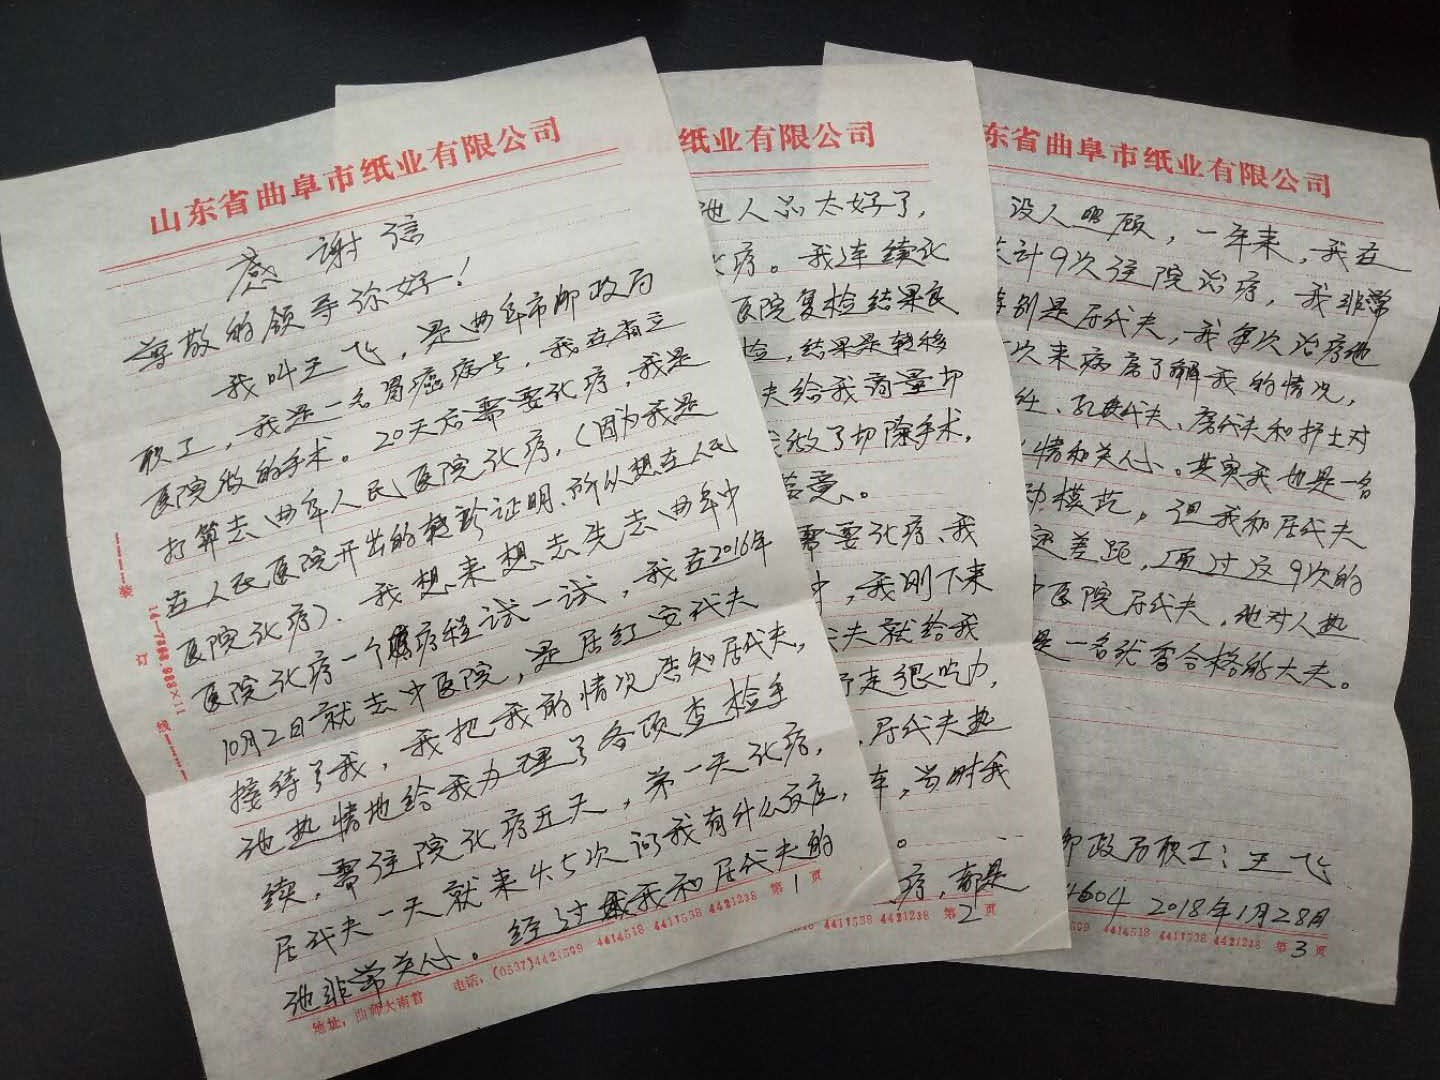 山东省曲阜市纸业有限公司
感谢信
尊敬的领导你好！
我叫王飞，是曲阜市邮政局
职工，我是一名胃癌病号，我在省立
医院做的手术。20天后需要化疗，我是
打算去曲阜人民医院化疗，（因为我是
在人民医院开出的转诊证明，所以想在人民
医院化疗）．我想来想去先去曲阜中
医院化疗一个疗程试一试，我在2016年
10月2日就去中医院，是居红安代夫
接待了我，我把我的情况告知居代夫，
他热情地给我办理了各项查检手
续，需住院化疗五天，第一天化疗，
居代夫一天就来4.5次问我有什么反应，
他非常关心。经过我和居代夫的
地址：曲师大南首 电话：(0537)4421599 4414518 4411538 4421238 第1页
装
14—7888.988×11
订
线
纸业有限公司
他人品太好了，
疗。我连续化
医院复检结果良
检，结果是转移
夫给我商量切
做了切除手术，
意。
需要化疗、我
中，我刚下来
夫就给我
走很吃力，
居代夫热
车，当时我
。
疗，都是
4411538 4421238 第2页
东省曲阜市纸业有限公司
没人照顾，一年来，我在
共计9次住院治疗，我非常
特别是居代夫，我每次治疗他
次来病房了解我的情况，
任、孔代夫、唐代夫和护士对
情和关心。其实我也是一名
动模范，但我和居代夫
定差距，通过这9次的
中医院居代夫，他对人热
是一名优秀合格的大夫。
邮政局职工：王飞
4604 2018年1月28日
4414518 4411538 4421238 第3页